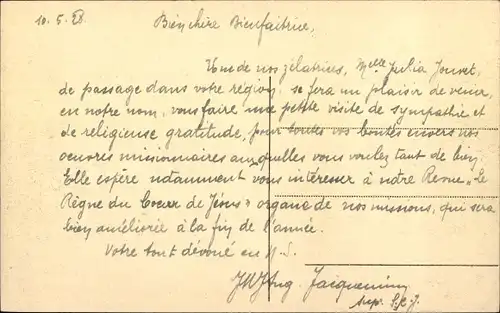 10. 5. 28. Bien chère Bienfaitrice,
Une de nos zélatrices, Melle Julia Jouret,
de passage dans votre région, se fera un plaisir de venir,
en notre nom, vous faire une petite visite de sympathie et
de religieuse gratitude, pour toutes vos bontés envers nos
oeuvres missionnaires auxquelles vous voulez tant de bien.
Elle espère notamment vous intéresser à notre Revue "Le
Règne du Coeur de Jésus" organe de nos missions, qui sera
bien améliorée à la fin de l'année.
Votre tout dévoué en N. S.
Aug. Jacquemin
Sup. S.C.J.